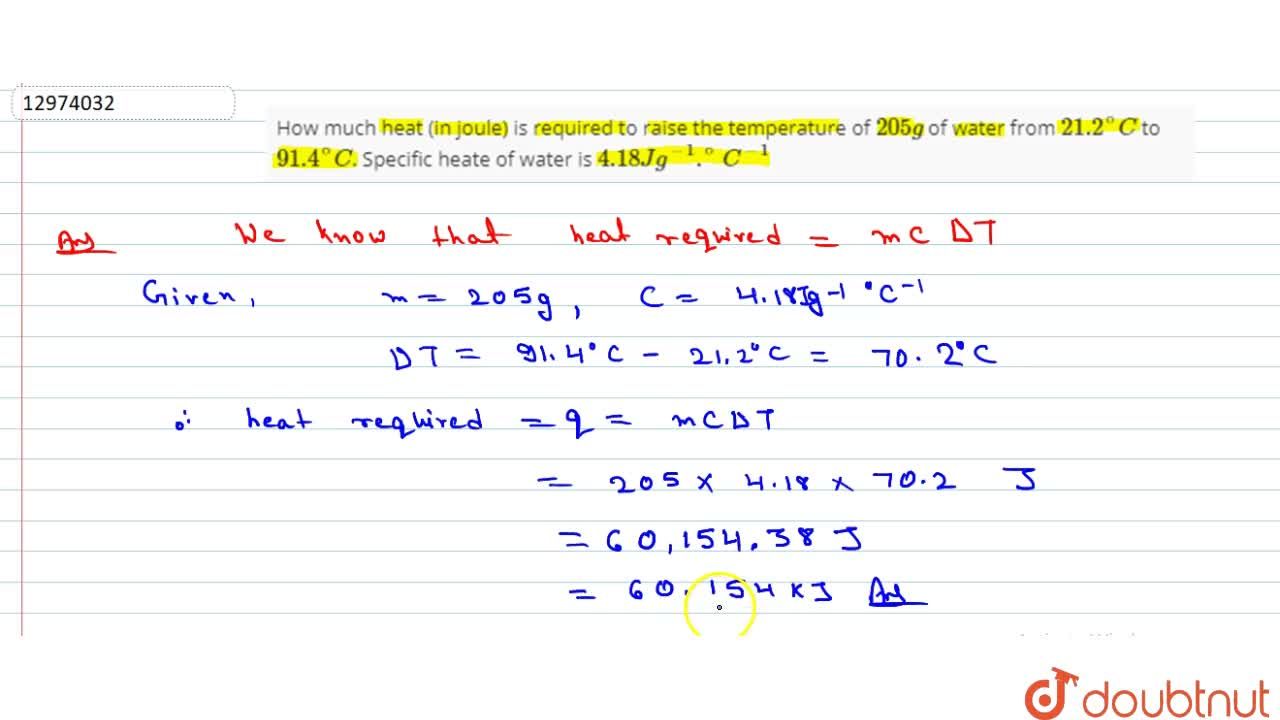 12974032
How much heat (in joule) is required to raise the temperature of 205g of water from 21.2°C to
91.4°C. Specific heate of water is 4.18Jg⁻¹.°C⁻¹
Ans We know that heat required = mC DT
Given, m = 205g, C = 4.18Jg-1 °C-1
DT = 91.4°C - 21.2°C = 70.2°C
∴ heat required = q = mCDT
= 205 × 4.18 × 70.2 J
= 60,154.38 J
= 60.154 KJ Ans
doubtnut